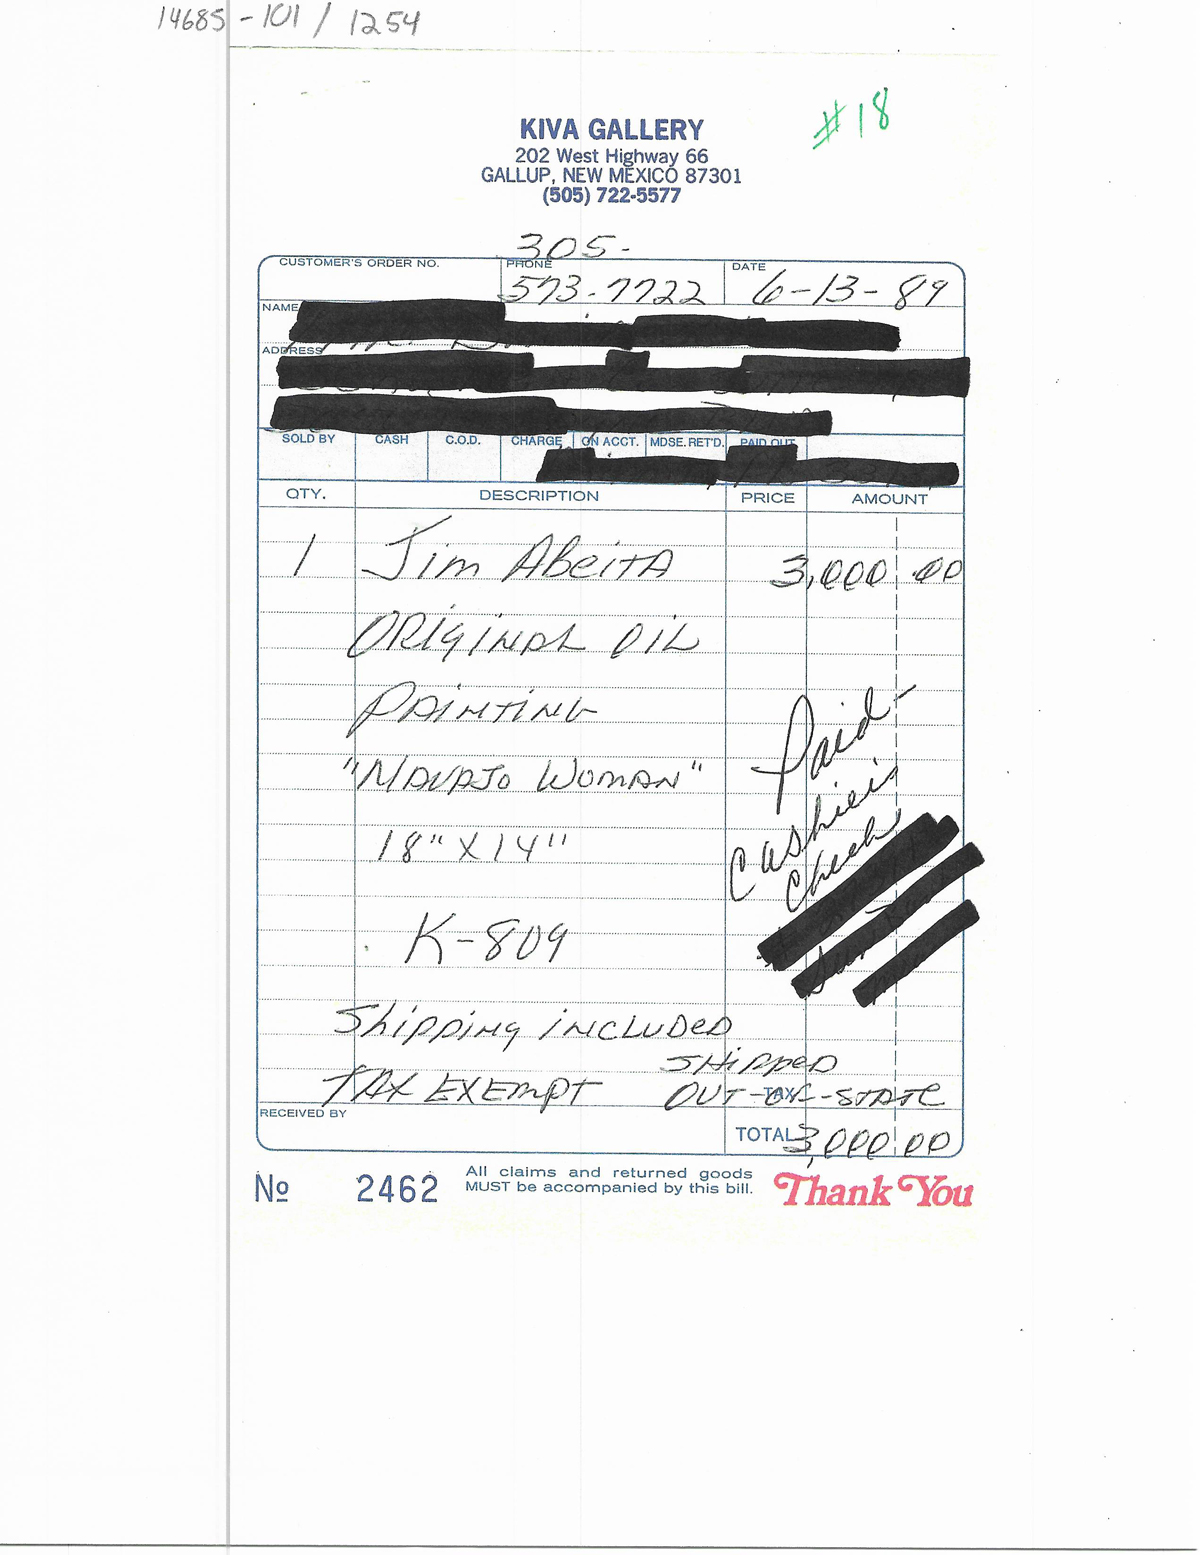 14685-101 / 1254
#18
KIVA GALLERY
202 West Highway 66
GALLUP, NEW MEXICO 87301
(505) 722-5577
305-
CUSTOMER'S ORDER NO. PHONE DATE
573-7722 6-13-89
NAME
ADDRESS
SOLD BY CASH C.O.D. CHARGE ON ACCT. MDSE. RET'D. PAID OUT
QTY. DESCRIPTION PRICE AMOUNT
1 Jim Abeita 3,000.00
ORiginAL OIL
PAINTING
"NAVAJO WOMAN"
18" X 14"
K-809
Paid-
Cashier's
Check
Shipping INCLUDED
SHIPPED
TAX EXEMPT OUT-OF-STATE
TAX
RECEIVED BY
TOTAL 3,000.00
No 2462
All claims and returned goods
MUST be accompanied by this bill.
Thank You